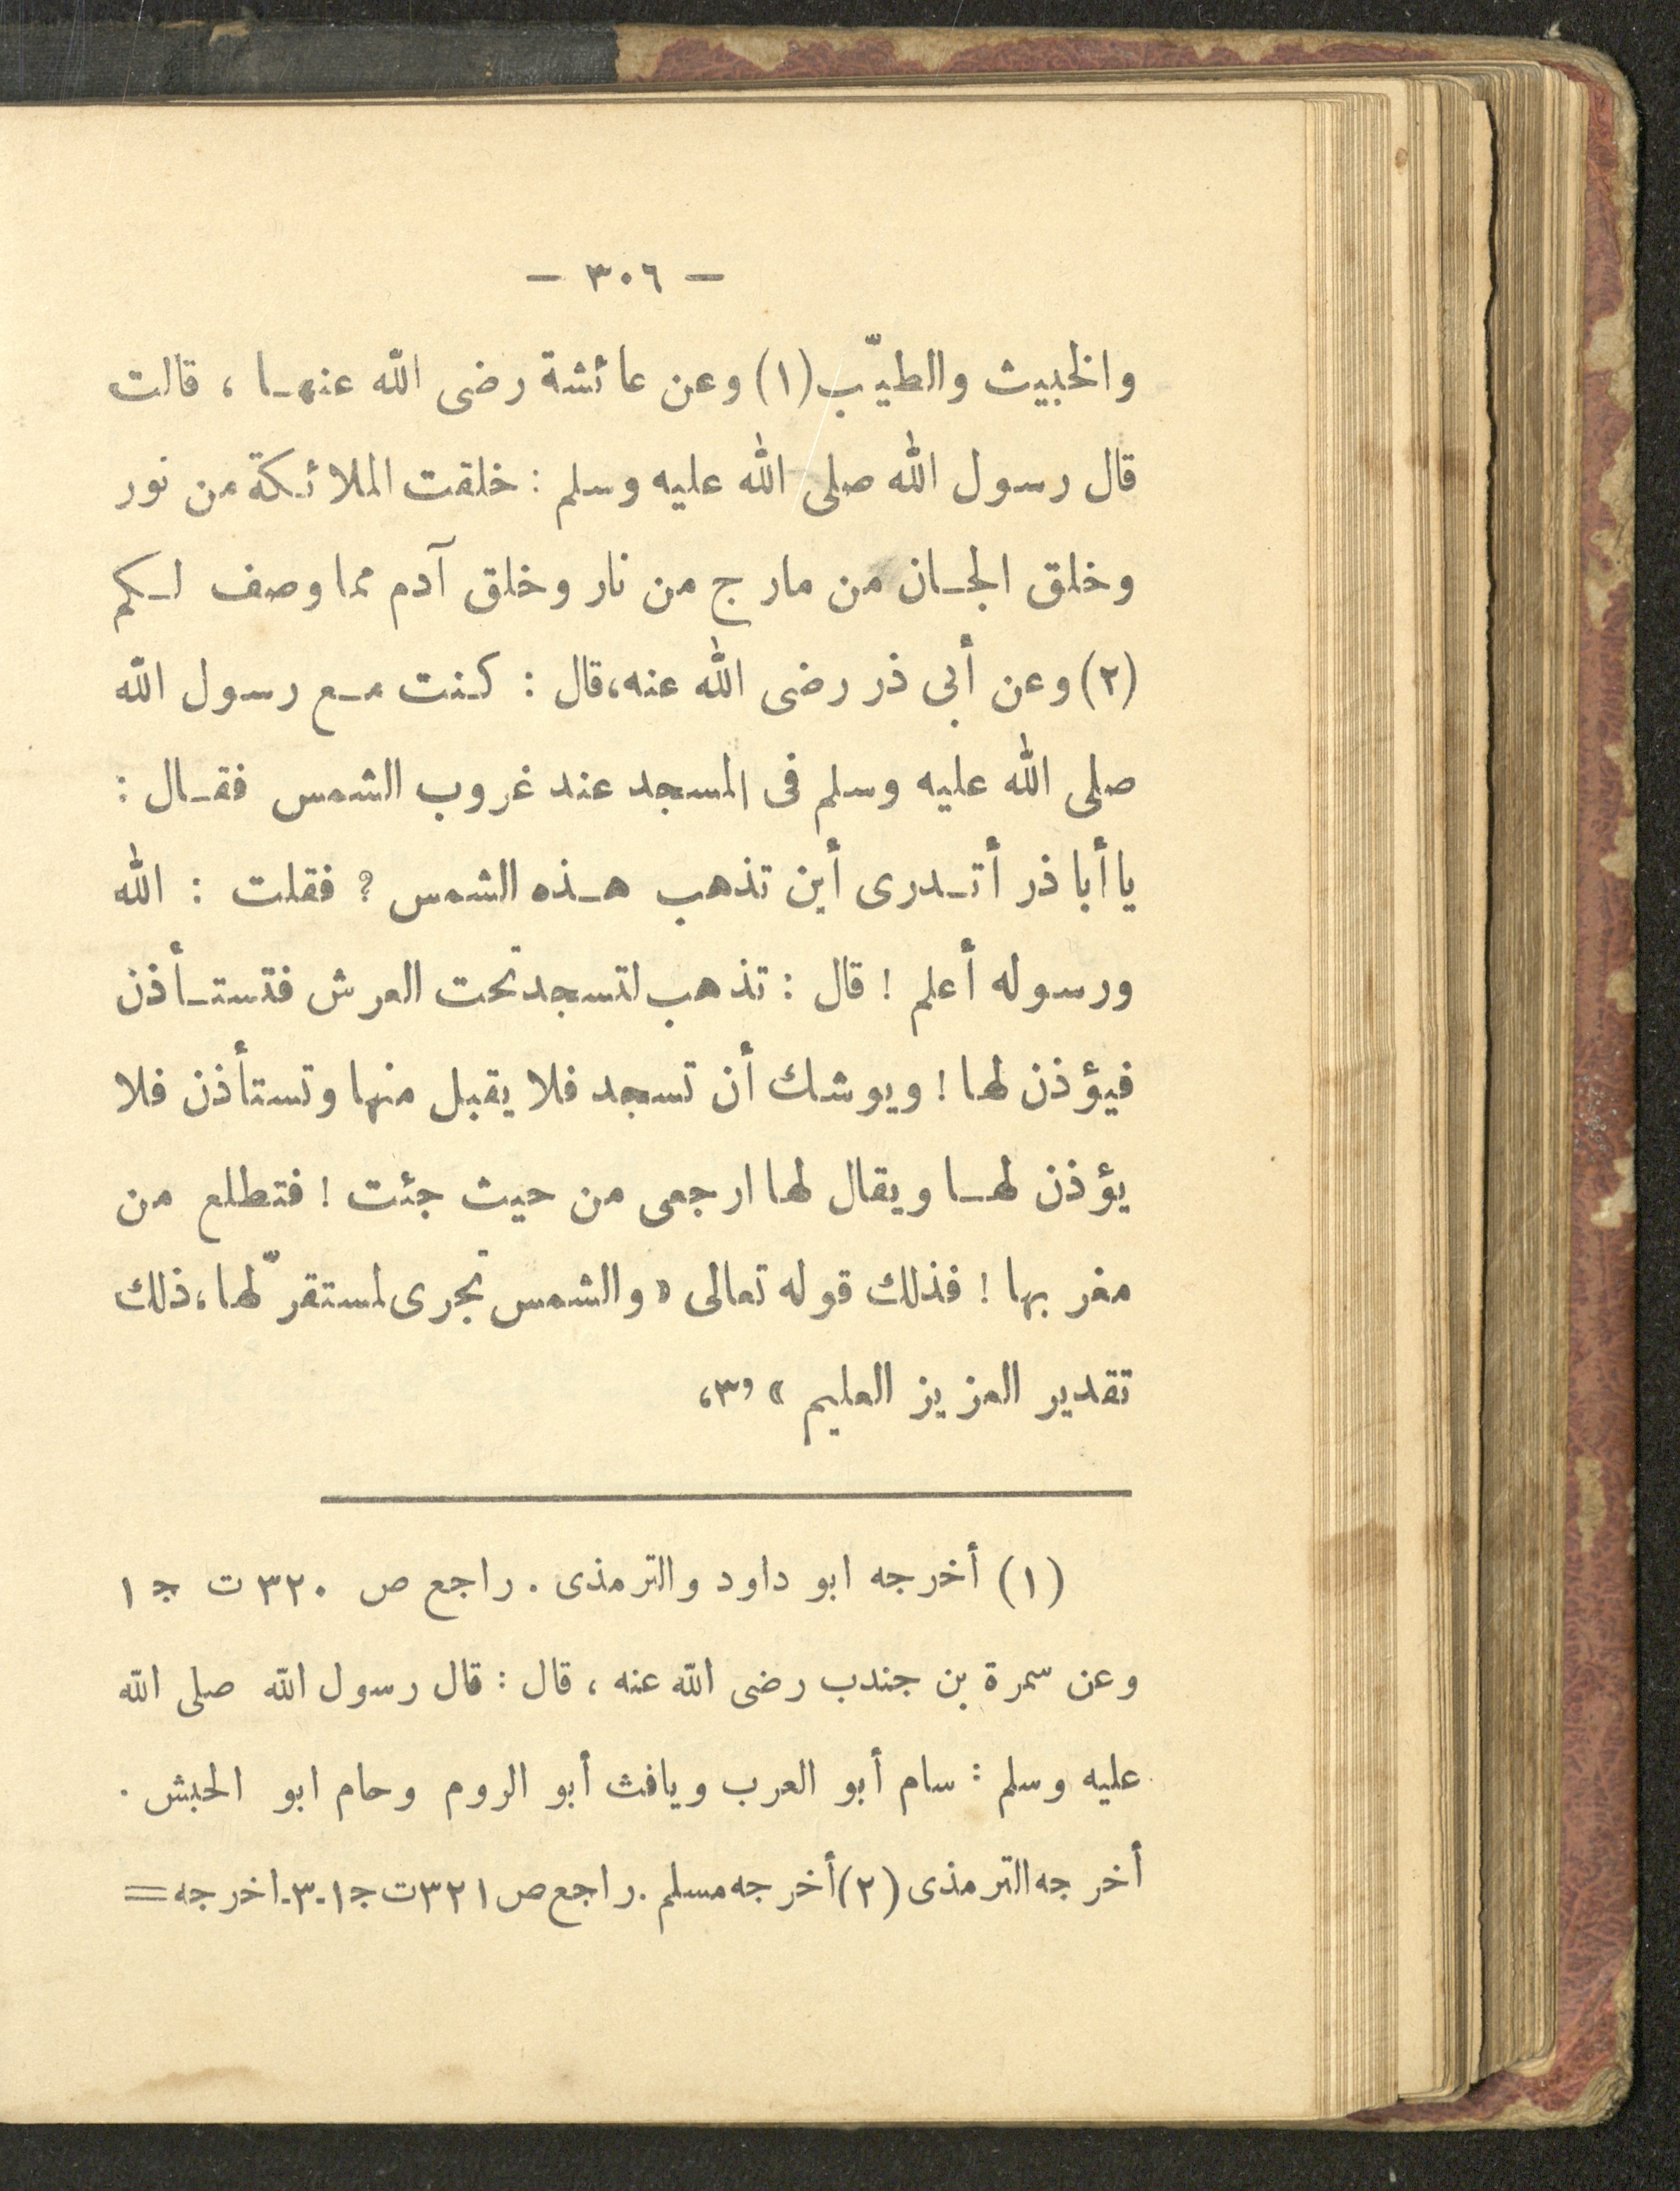 — ٣٠٦ —
والخبيث والطيّب (١) وعن عائشة رضى الله عنهـا ، قالت
قال رسول الله صلى الله عليه وسلم : خلقت الملائكة من نور
وخلق الجـان من مارج من نار وخلق آدم مما وصف لـكم
(٢) وعن أبى ذر رضى الله عنه، قال : كـنت مـع رسول الله
صلى الله عليه وسلم فى المسجد عند غروب الشمس فقـال :
يا أبا ذر أتـدرى أين تذهب هـذه الشمس ؟ فقلت : الله
ورسوله أعلم ! قال : تذهب لتسجد تحت العرش فتستـأذن
فيؤذن لها ! ويوشك أن تسجد فلا يقبل منها وتستأذن فلا
يؤذن لهـا ويقال لها ارجعى من حيث جئت ! فتطلع من
مغربها ! فذلك قوله تعالى « والشمس تجرى لمستقرّ لها ، ذلك
تقدير العزيز العليم » «٣»
(١) أخرجه ابو داود والترمذى . راجع ص ٣٢٠ ت ج ١
وعن سمرة بن جندب رضى الله عنه ، قال : قال رسول الله صلى الله
عليه وسلم : سام أبو العرب ويافث أبو الروم وحام ابو الحبش .
أخرجه الترمذى (٢) أخرجه مسلم . راجع ص ٣٢١ ت ج ١ -٣- اخرجه =